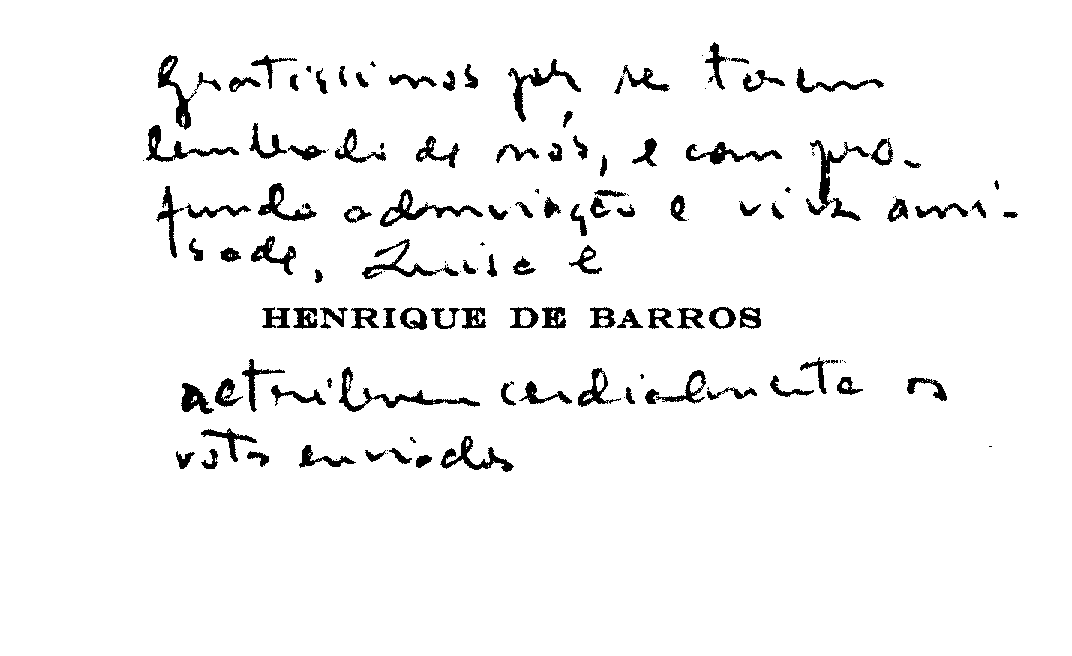 Gratíssimos por se terem
lembrado de nós, e com pro-
funda admiração e viva ami-
sade, Luisa e
HENRIQUE DE BARROS
retribuem cordialmente os
votos enviados